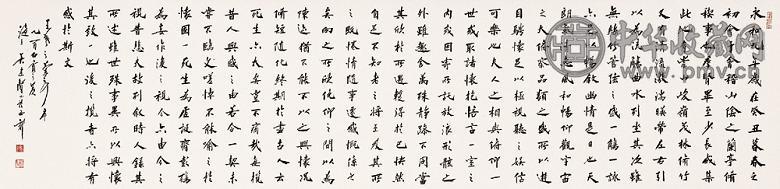 永和九年歲在癸丑暮春之
初會于會稽山陰之蘭亭脩
稧事也群賢畢至少長咸集
此地有崇山峻嶺茂林脩竹
又有清流激湍暎帶左右引
以為流觴曲水列坐其次雖
無絲竹管弦之盛一觴一詠
亦足以暢敘幽情是日也天
朗氣清惠風和暢仰觀宇宙
之大俯察品類之盛所以遊
目騁懷足以極視聽之娛信
可樂也夫人之相與俯仰一
世或取諸懷抱悟言一室之
內或因寄所託放浪形骸之
外雖趣舍萬殊靜躁不同當
其欣於所遇暫得於己怏然
自足不知老之將至及其所
之既惓情隨事遷感慨係之
矣向之所欣俛仰之間以為
陳迹猶不能不以之興懷況
脩短隨化終期於盡古人云
死生亦大矣豈不痛哉每攬
昔人興感之由若合一契未
嘗不臨文嗟悼不能喻之於
懷固一死生為虛誕齊彭殤
為妄作後之視今亦由今之
視昔悲夫故列敘時人錄其
所述雖世殊事異所以興懷
其致一也後之攬者亦將有
感於斯文